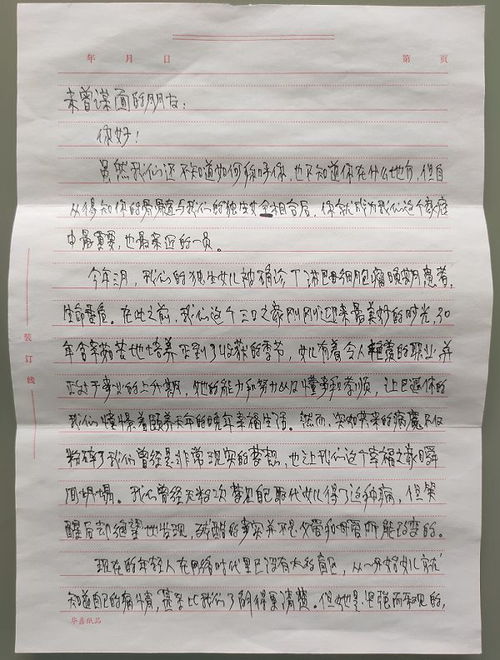 年 月 日 第 页
未曾谋面的朋友：
你好！
虽然我们还不知道如何称呼你，也不知道你在什么地方，但自
从得知你的骨髓与我们的独生女全相合后，你就成为我们这个家庭
中最重要，也最亲近的一员。
今年三月，我们的独生女儿被确诊了淋巴母细胞瘤晚期患者，
生命垂危。在此之前，我们这个三口之家刚刚迎来最美好的时光，30
年含辛茹苦地培养正到了收获的季节，女儿有着令人羡慕的职业，并
正处于事业的上升期，她的能力和努力以及懂事和孝顺，让已退休的
我们憧憬着颐养天年的晚年幸福生活。然而，突如其来的病魔不仅
粉碎了我们曾经是非常现实的梦想，也让我们这个幸福之家瞬
间坍塌。我们曾经无数次梦见自己取代女儿得了这种病，但笑
醒后却绝望地发现，残酷的事实并不是父爱和母爱所能改变的。
现在的年轻人在网络时代里已没有太多盲区，从一开始女儿就
知道自己的病情，甚至比我们了解得更清楚。但她是坚强而乐观的，
装订线
华嘉纸品